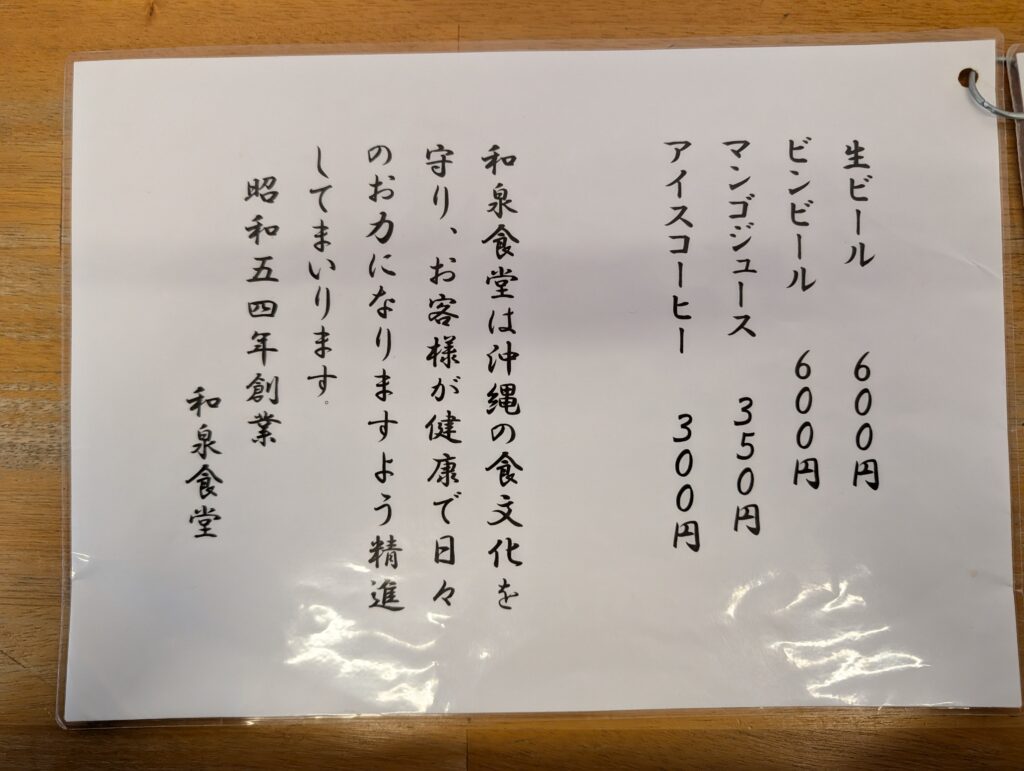 生ビール　600円
ビンビール　600円
マンゴジュース　350円
アイスコーヒー　300円
和泉食堂は沖縄の食文化を
守り、お客様が健康で日々
のお力になりますよう精進
してまいります。
昭和五四年創業
和泉食堂